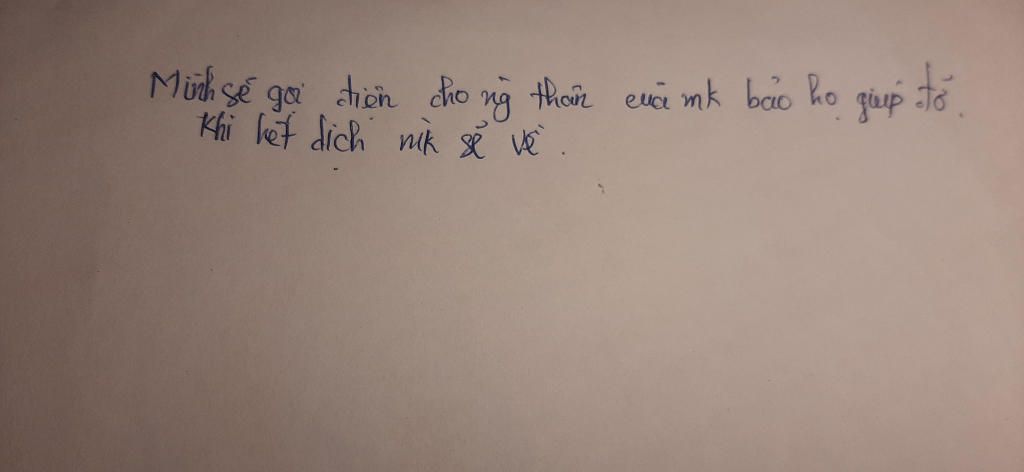 Mình sẽ gọi điện cho ng thân của mk bảo họ giúp đỡ.
Khi hết dịch mk sẽ về.